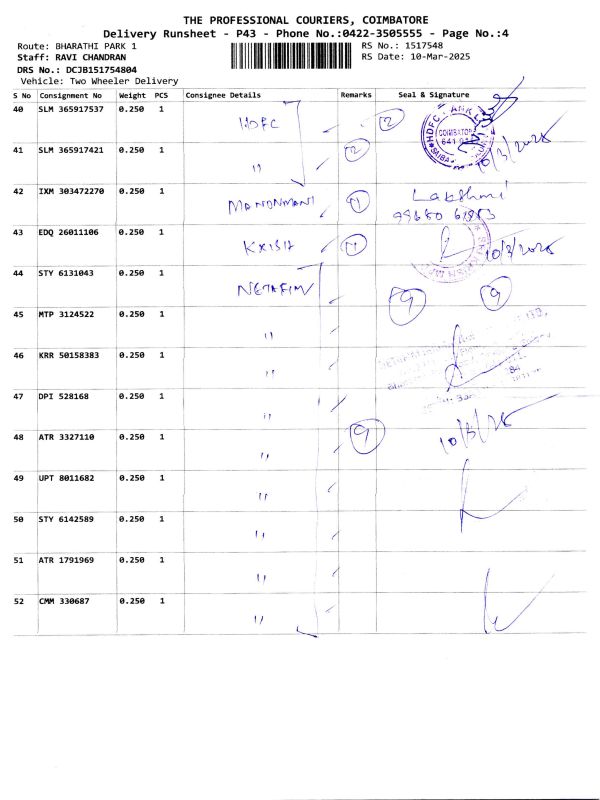 THE PROFESSIONAL COURIERS, COIMBATORE
Delivery Runsheet - P43 - Phone No.:0422-3505555 - Page No.:4
Route: BHARATHI PARK 1
RS No.: 1517548
Staff: RAVI CHANDRAN
RS Date: 10-Mar-2025
DRS No.: DCJB151754804
Vehicle: Two Wheeler Delivery
S No Consignment No Weight PCS Consignee Details Remarks Seal & Signature
40 SLM 365917537 0.250 1 HDFC 2
HDFC BANK
COIMBATORE
10/3/2025
41 SLM 365917421 0.250 1 " 2
42 IXM 303472270 0.250 1 MANONMANI 1 Lakshmi
43 EDQ 26011106 0.250 1 1 10/3/2025
44 STY 6131043 0.250 1 NETAFIM 9 9
45 MTP 3124522 0.250 1 "
46 KRR 50158383 0.250 1 "
47 DPI 528168 0.250 1 "
48 ATR 3327110 0.250 1 " 9 10/3/25
49 UPT 8011682 0.250 1 "
50 STY 6142589 0.250 1 "
51 ATR 1791969 0.250 1 "
52 CMM 330687 0.250 1 "